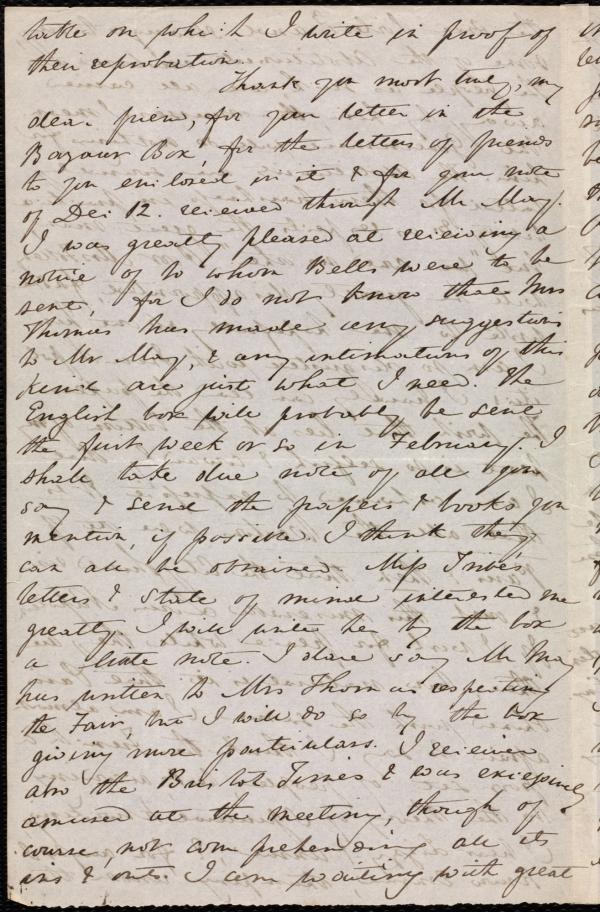 table on which I write in proof of
their reprobation.
Thank you most truly, my
dear friend, for your letter in the
Bazaar Box, for the letters of friends
to you enclosed in it & for your note
of Dec. 12. received through Mr May.
I was greatly pleased at receiving a
notice of to whom Bells were to be
sent, for I do not know that Mrs
Thomas has made any suggestions
to Mr May, & any intimations of this
kind are just what I need. The
English box will probably be sent
the first week or so in February. I
shall take due note of all you
say & send the papers & books you
mention, if possible. I think they
can all be obtained. Miss
letters & state of mind interested me
greatly. I will write her by the box
a little note. I dare say Mr May
has written to Mrs Thomas respecting
the Fair, but I will do so by the box
giving more particulars. I received
also the Bristol Times & was excessively
amused at the meeting, though of
course, not comprehending all its
ins & outs. I am waiting with great